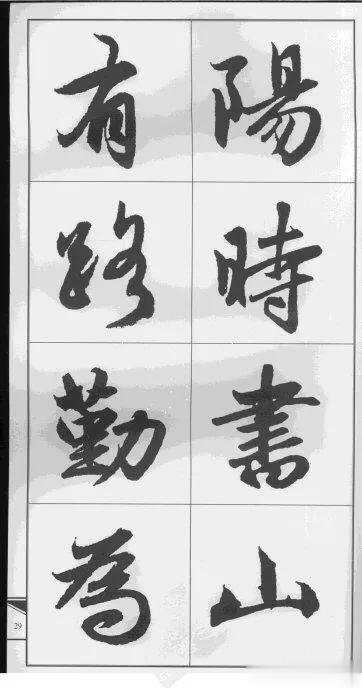 陽時書山
有路勤為
29